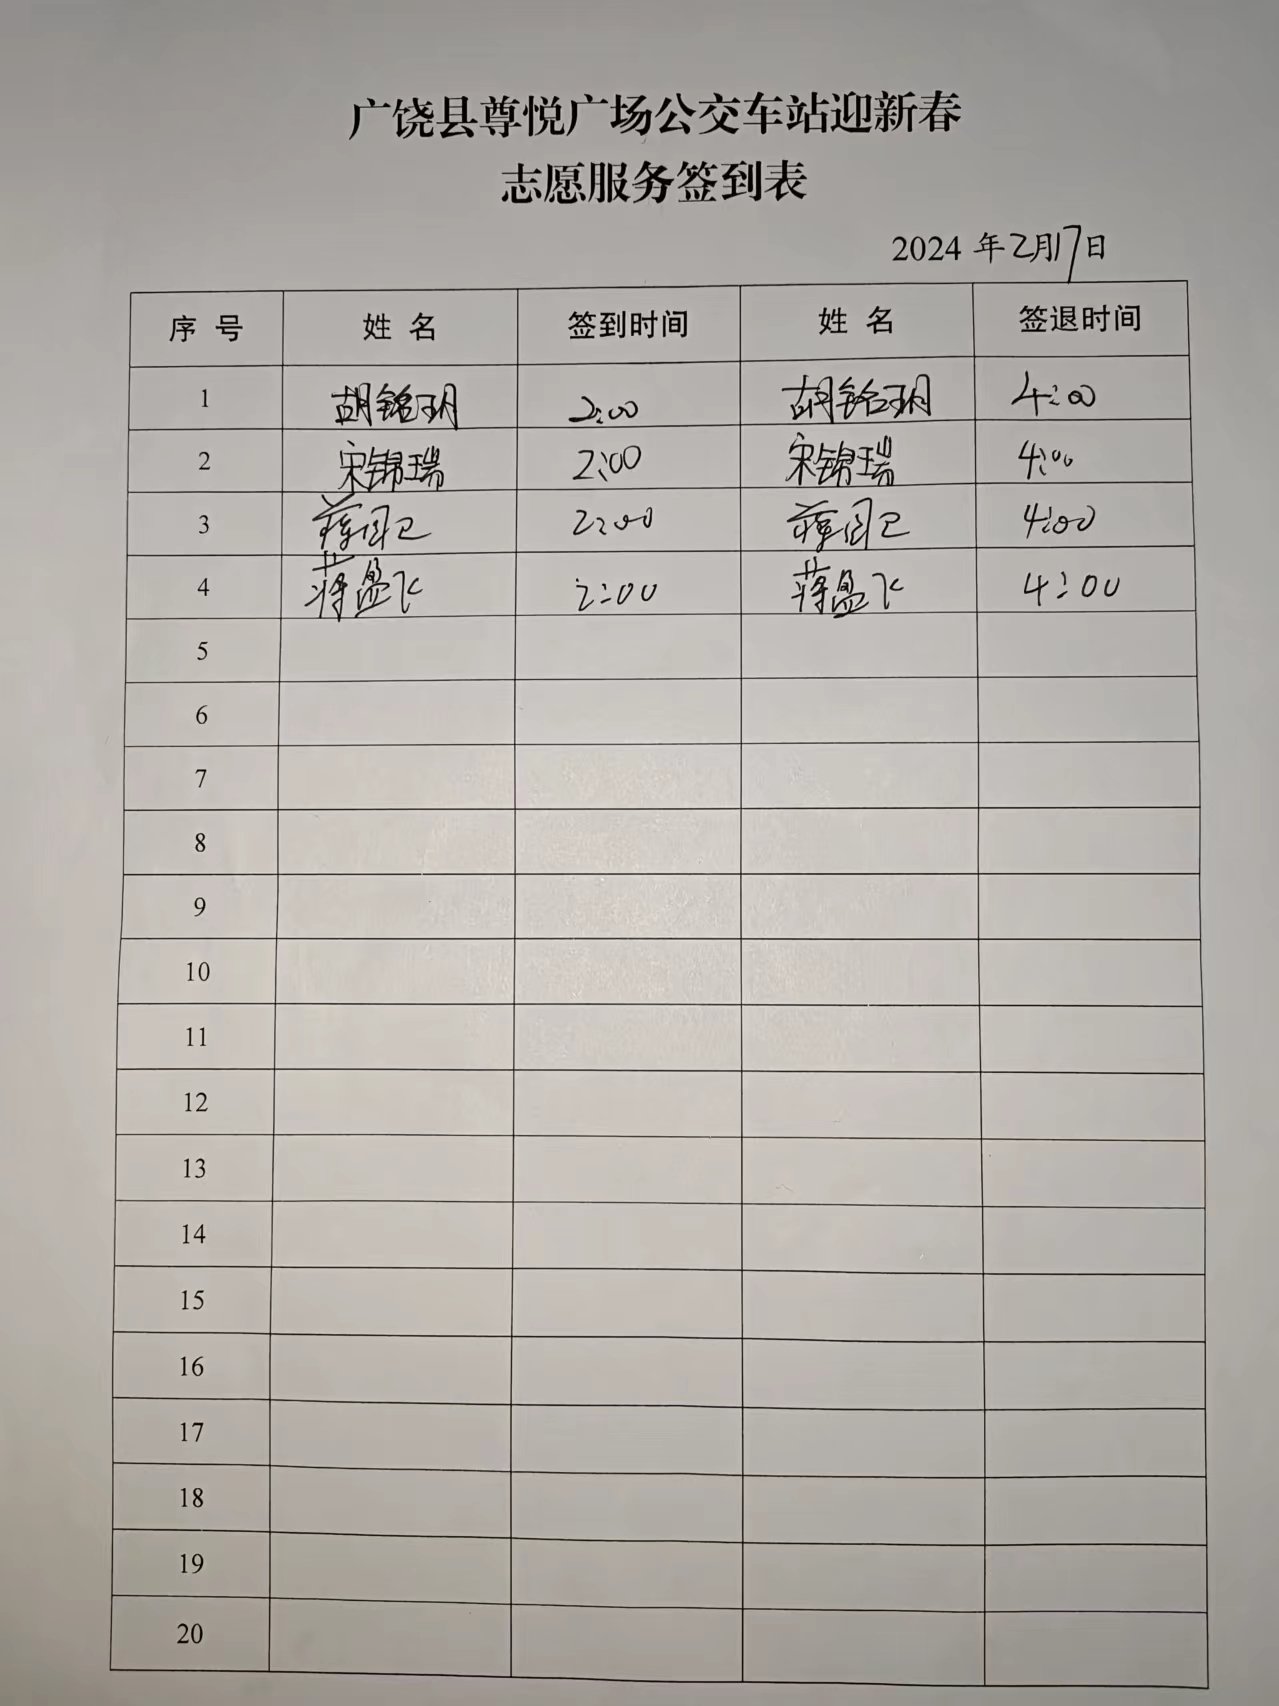 广饶县尊悦广场公交车站迎新春
志愿服务签到表
2024 年2月17日
序号 姓名 签到时间 姓名 签退时间
1 胡铭玥 2:00 胡铭玥 4:00
2 宋锦瑞 2:00 宋锦瑞 4:00
3 2:00 4:00
4 蒋盈飞 2:00 蒋盈飞 4:00
5
6
7
8
9
10
11
12
13
14
15
16
17
18
19
20